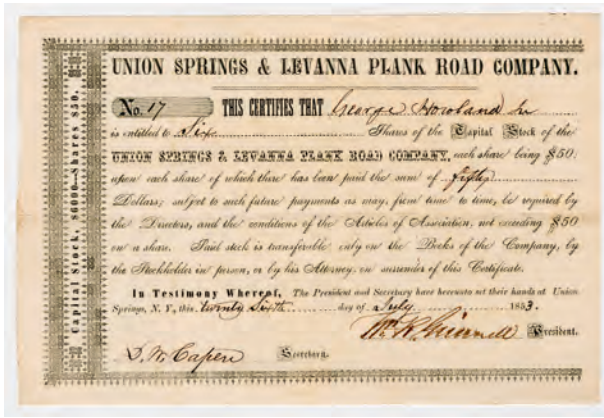 UNION SPRINGS & LEVANNA PLANK ROAD COMPANY.
No. 17 THIS CERTIFIES THAT George Howland Jr
is entitled to Six Shares of the Capital Stock of the
UNION SPRINGS & LEVANNA PLANK ROAD COMPANY, each share being $50;
upon each share of which there has been paid the sum of fifty
Dollars; subject to such future payments as may, from time to time, be required by
the Directors, and the conditions of the Articles of Association, not exceeding $50
on a share. Said stock is transferable only on the Books of the Company, by
the Stockholder in person, or by his Attorney, on surrender of this Certificate.
In Testimony Whereof, The President and Secretary have hereunto set their hands at Union
Springs, N. Y., this twenty Sixth day of July 1853.
Wm R. Grinnell President.
D. W. Capen Secretary.
Capital Stock, $6000—Shares $50.